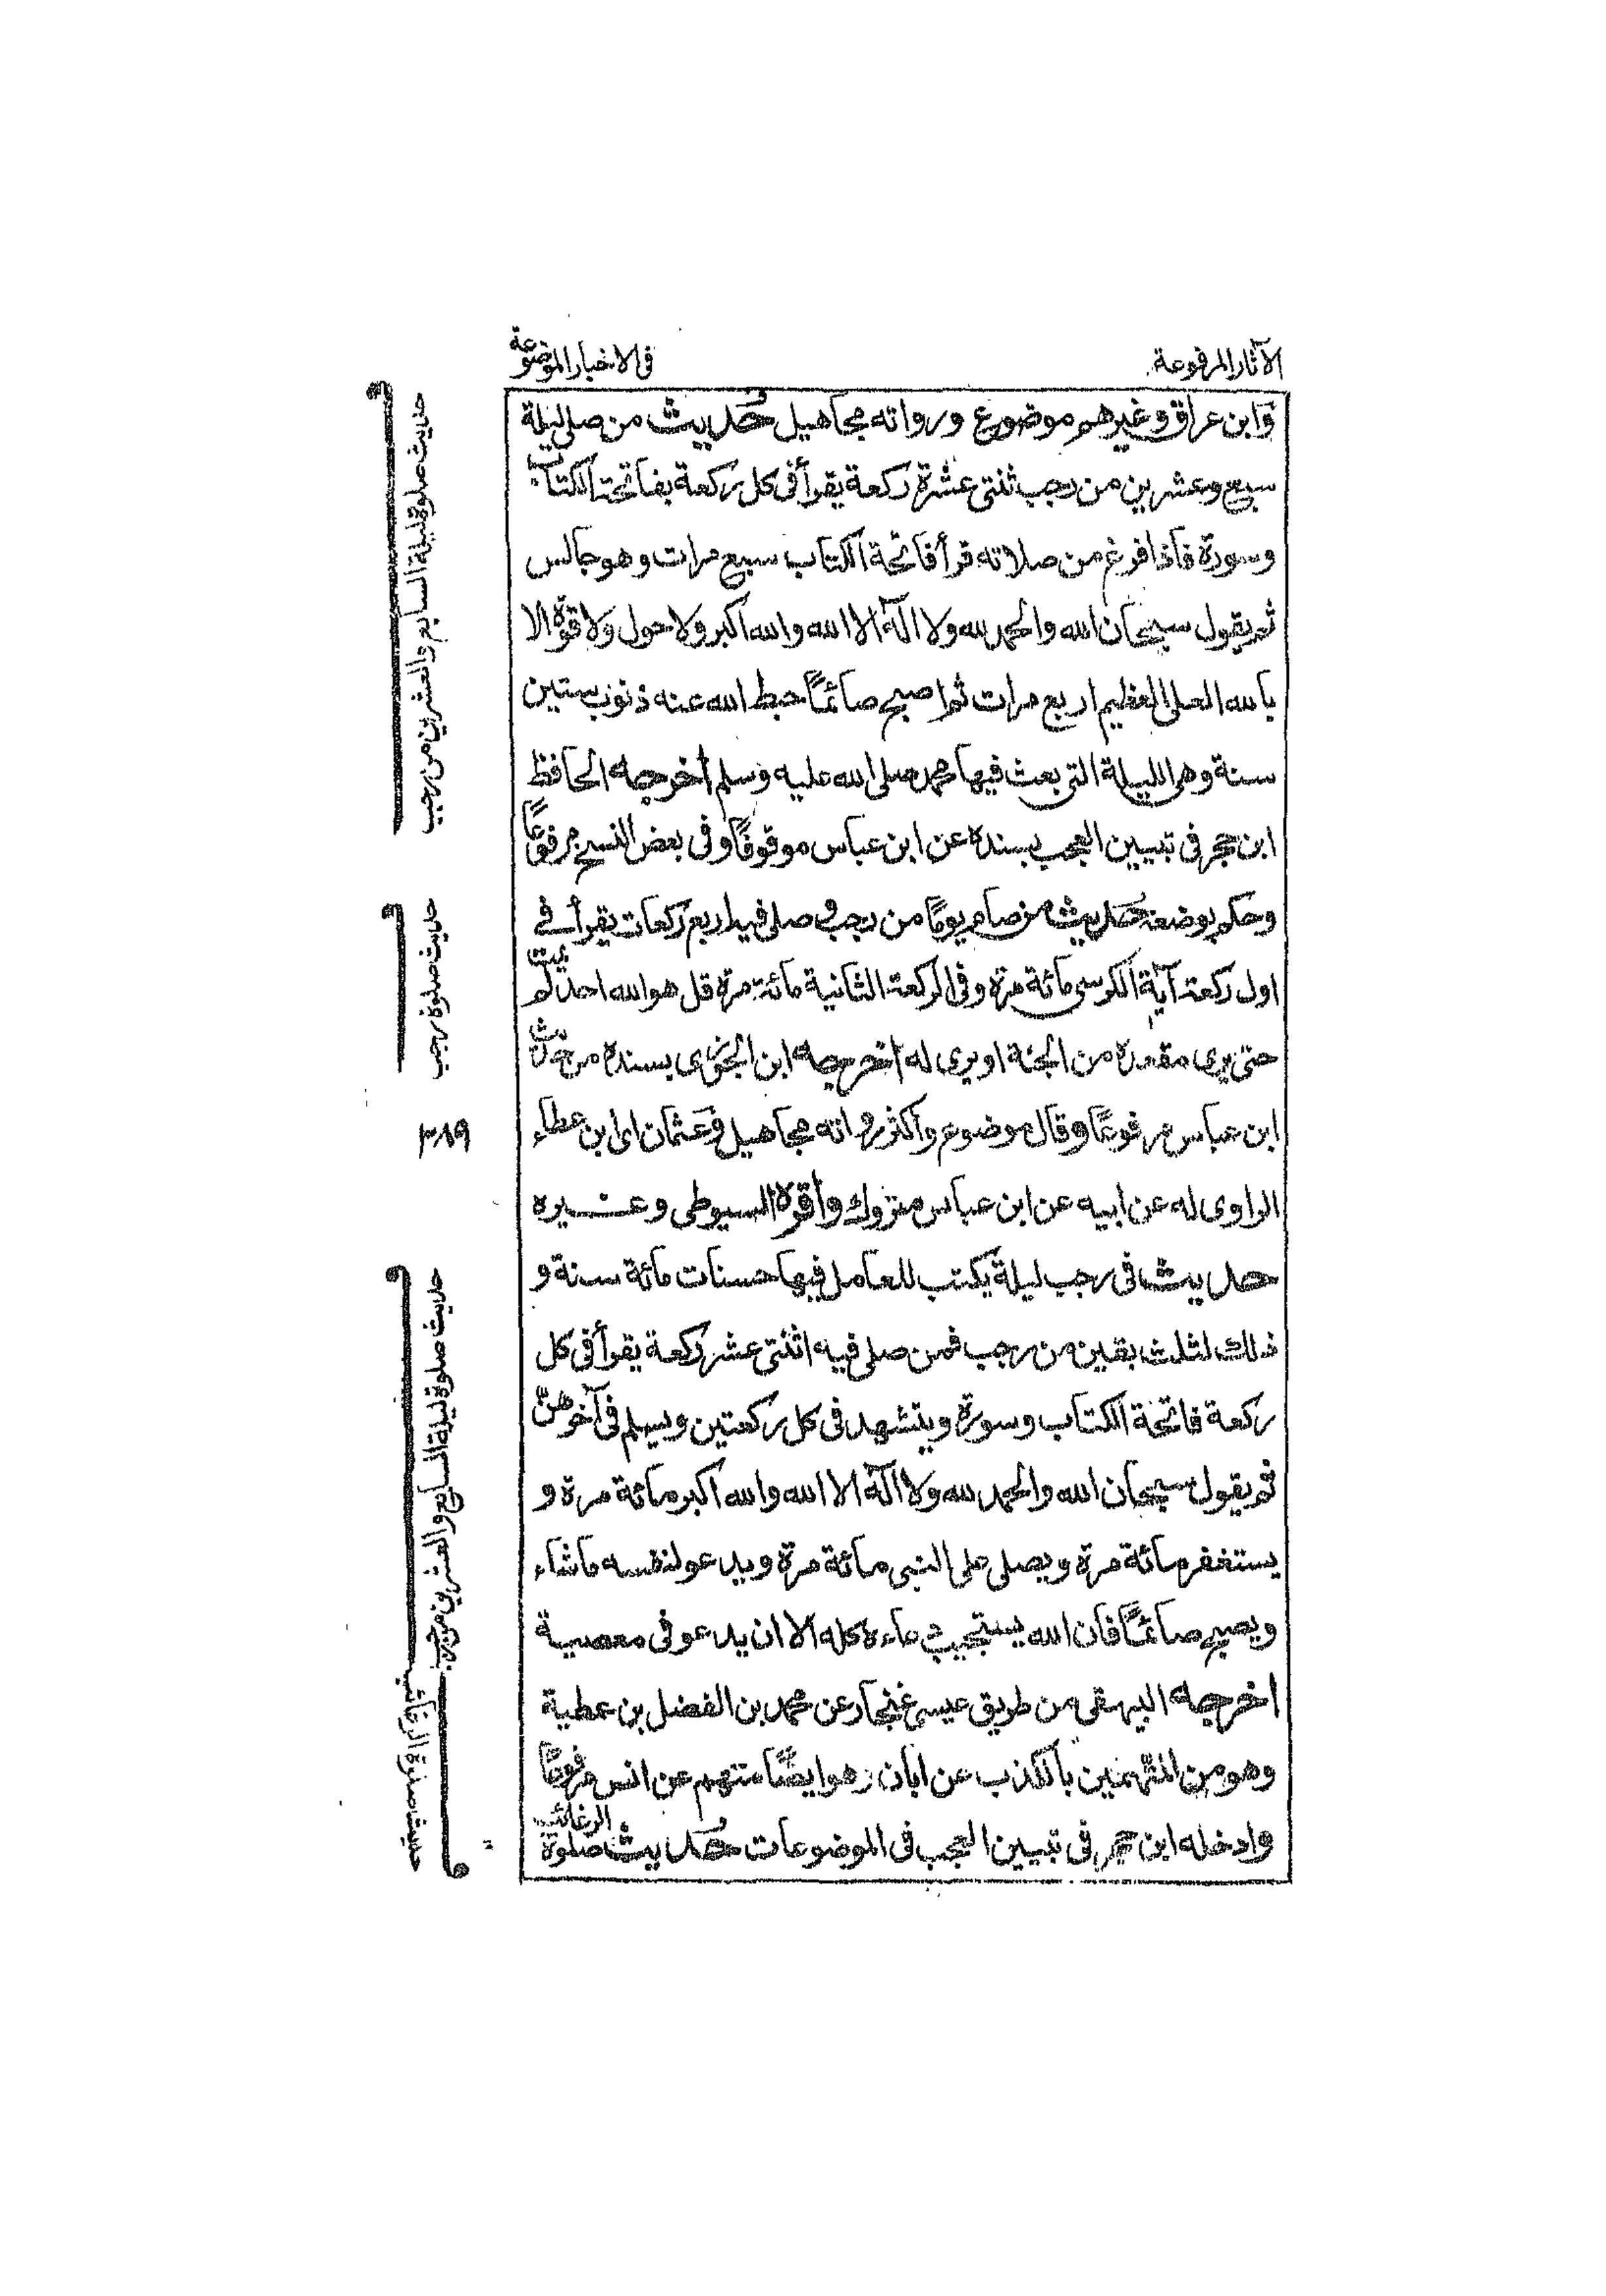 الآثار المرفوعة
فى الاخبار الموضوعة
وابن عراق وغيرهم موضوع ورواته مجاهيل حديث من صلى ليلة
سبع وعشرين من رجب ثنتى عشرة ركعة يقرأ فى كل ركعة بفاتحة الكتاب
وسورة فاذا فرغ من صلاته قرأ فاتحة الكتاب سبع مرات وهو جالس
ثم يقول سبحان الله والحمد لله ولا اله الا الله والله اكبر ولا حول ولا قوة الا
بالله العلى العظيم اربع مرات ثم اصبح صائماً حبط الله عنه ذنوب ستين
سنة وهى الليلة التى بعث فيها محمد صلى الله عليه وسلم اخرجه الحافظ
ابن حجر فى تبيين العجب بسنده عن ابن عباس موقوفاً وفى بعض النسخ مرفوعاً
وحكم بوضعه حديث من صام يوماً من رجب و صلى فيه اربع ركعات يقرأ فے
اول ركعة آية الكرسى مائة مرة وفى الركعة الثانية مائة مرة قل هو الله احد لم يمت
حتى يرى مقعده من الجنة او يرى له اخرجه ابن الجوزى بسنده من حديث
ابن عباس مرفوعاً وقال موضوع واكثر رواته مجاهيل وعثمان اى ابن عطاء
الراوى له عن ابيه عن ابن عباس متروك واقره السيوطى وغيره
حديث فى رجب ليلة يكتب للعامل فيها حسنات مائة سنة و
ذلك لثلث بقين من رجب فمن صلى فيه اثنتى عشر ركعة يقرأ فى كل
ركعة فاتحة الكتاب وسورة ويتشهد فى كل ركعتين ويسلم فى آخرهن
ثم يقول سبحان الله والحمد لله ولا اله الا الله والله اكبر مائة مرة و
يستغفر مائة مرة ويصلى على النبى مائة مرة ويدعو لنفسه ما شاء
ويصبح صائماً فان الله يستجيب دعاءه كله الا ان يدعو فى معصية
اخرجه البيهقى من طريق عيسى غنجار عن محمد بن الفضل بن عطية
وهو من المتهمين بالكذب عن ابان وهو ايضاً متهم عن انس مرفوعاً
وادخله ابن حجر فى تبيين العجب فى الموضوعات حديث صلوة الرغائب
حديث صلوة ليلة السابع والعشرين من رجب
حديث صلوة رجب
٣٨٩
حديث صلوة ليلة السابع والعشرين من رجب
حديث صلوة الرغائب